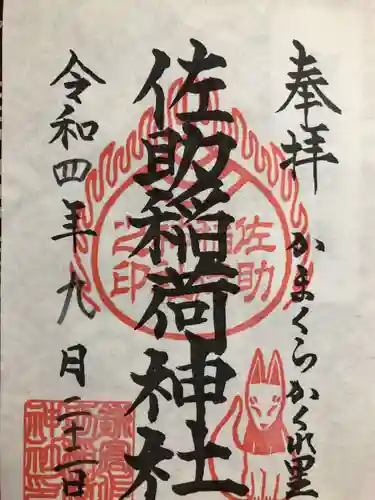 奉拝
かまくらかくれ里
佐助稲荷神社
令和四年九月二十二日
佐助稲荷
之印